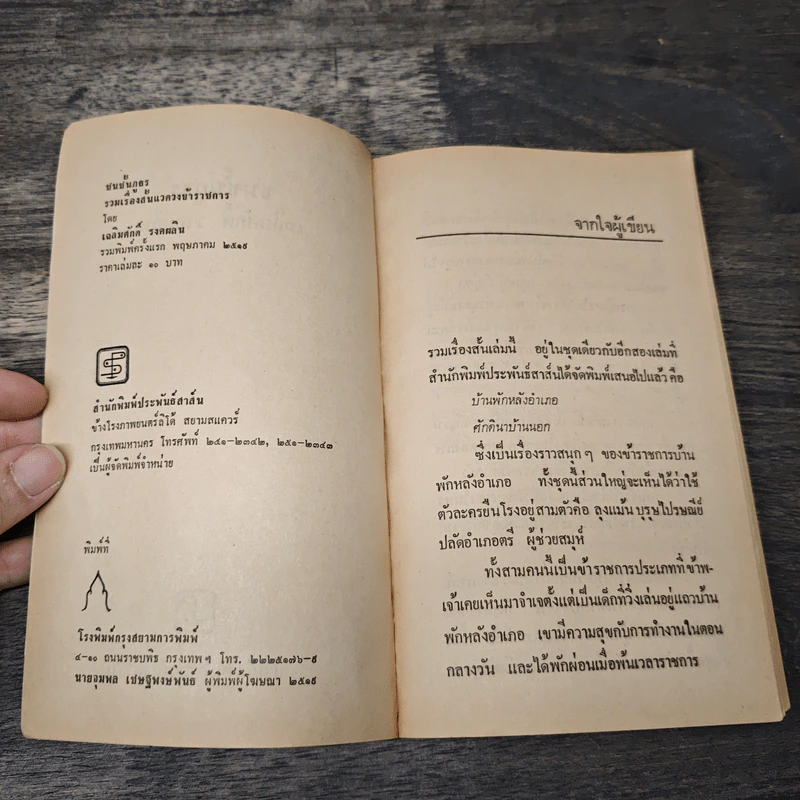 ชนชั้นภูธร
รวมเรื่องสั้นแวดวงข้าราชการ
โดย
เฉลิมศักดิ์ รงคผลิน
รวมพิมพ์ครั้งแรก พฤษภาคม ๒๕๑๙
ราคาเล่มละ ๑๐ บาท
สำนักพิมพ์ประพันธ์สาส์น
ข้างโรงภาพยนตร์ลิโด้ สยามสแควร์
กรุงเทพมหานคร โทรศัพท์ ๒๕๑-๒๓๔๒, ๒๕๑-๒๓๔๓
เป็นผู้จัดพิมพ์จำหน่าย
พิมพ์ที่
โรงพิมพ์กรุงสยามการพิมพ์
๔-๑๐ ถนนราชบพิธ กรุงเทพฯ โทร. ๒๒๒๕๑๗๖-๙
นายจุมพล เชษฐพงษ์พันธ์ ผู้พิมพ์ผู้โฆษณา ๒๕๑๙
จากใจผู้เขียน
รวมเรื่องสั้นเล่มนี้ อยู่ในชุดเดียวกับอีกสองเล่มที่
สำนักพิมพ์ประพันธ์สาส์นได้จัดพิมพ์เสนอไปแล้ว คือ
บ้านพักหลังอำเภอ
ศักดินาบ้านนอก
ซึ่งเป็นเรื่องราวสนุก ๆ ของข้าราชการบ้าน
พักหลังอำเภอ ทั้งชุดนี้ส่วนใหญ่จะเห็นได้ว่าใช้
ตัวละครยืนโรงอยู่สามตัวคือ ลุงแม้น บุรุษไปรษณีย์
ปลัดอำเภอตรี ผู้ช่วยสมุห์
ทั้งสามคนนี้เป็นข้าราชการประเภทที่ ข้าพ-
เจ้าเคยเห็นมาจำเจตั้งแต่เป็นเด็กที่วิ่งเล่นอยู่แถวบ้าน
พักหลังอำเภอ เขามีความสุขกับการทำงานในตอน
กลางวัน และได้พักผ่อนเมื่อพ้นเวลาราชการ